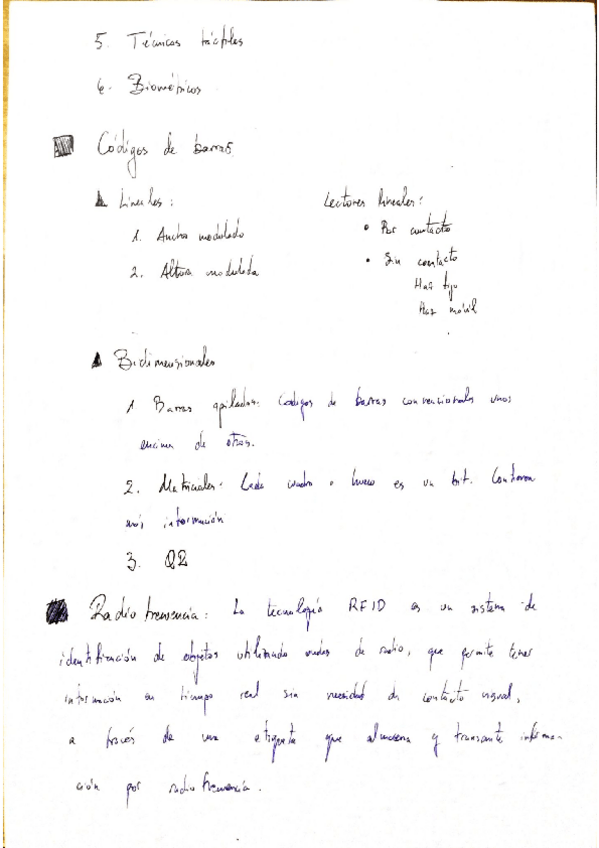 5. Técnicas táctiles
6. Biométricos
Códigos de barras
Lineales:
1. Ancho modulado
2. Altura modulada
Lectores lineales:
• Por contacto
• Sin contacto
Haz fijo
Haz móvil
Bidimensionales
1. Barras apilados: Códigos de barras convencionales unos
encima de otros.
2. Matriciales. Cada cuadro o hueco es un bit. Contienen
más información
3. QR
Radiofrecuencia: La tecnología RFID es un sistema de
identificación de objetos utilizando ondas de radio, que permite tener
información en tiempo real sin necesidad de contacto visual,
a través de una etiqueta que almacena y transmite informa-
ción por radiofrecuencia.